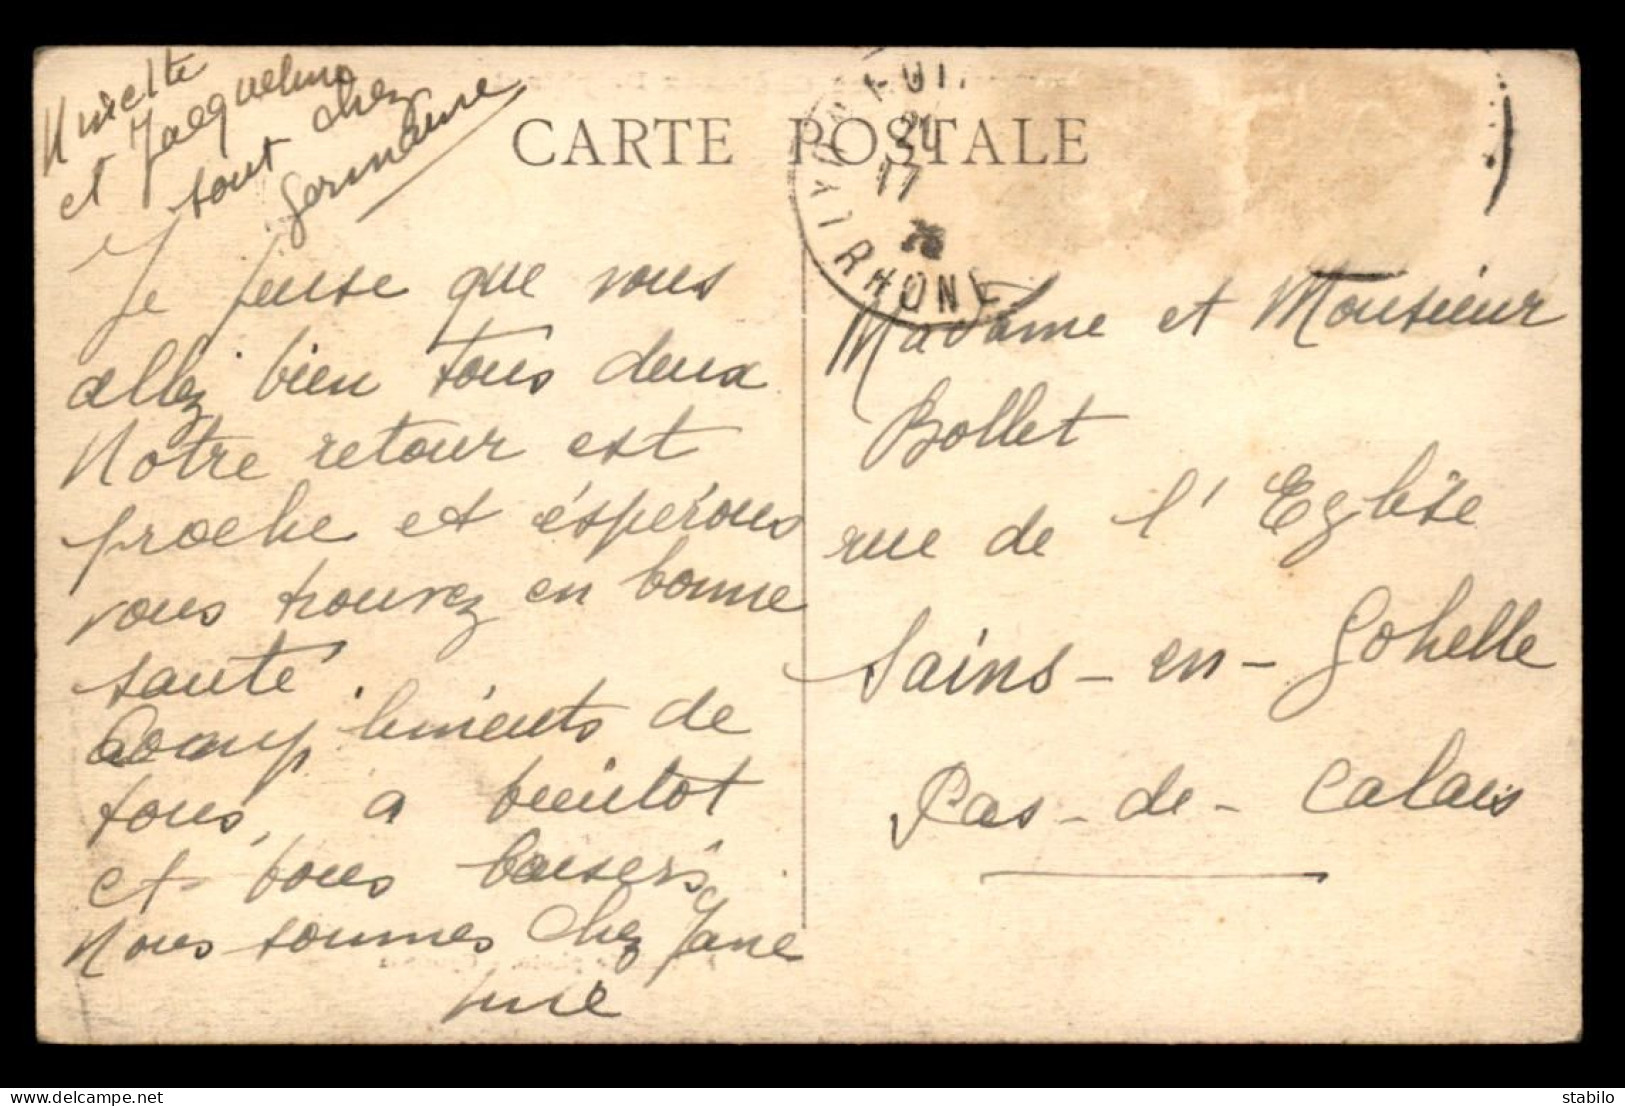 et Jacqueline
sont chez
Germaine
CARTE POSTALE
LYON
RHONE
Je pense que vous
allez bien tous deux
Notre retour est
proche et éspérons
vous trouvez en bonne
santé.
Compliments de
tous, a bientot
et bons baisers
Nous sommes chez Jane
Madame et Monsieur
Bollet
rue de l'Eglise
Sains-en-Gohelle
Pas-de-Calais
delcampe.net
stabilo